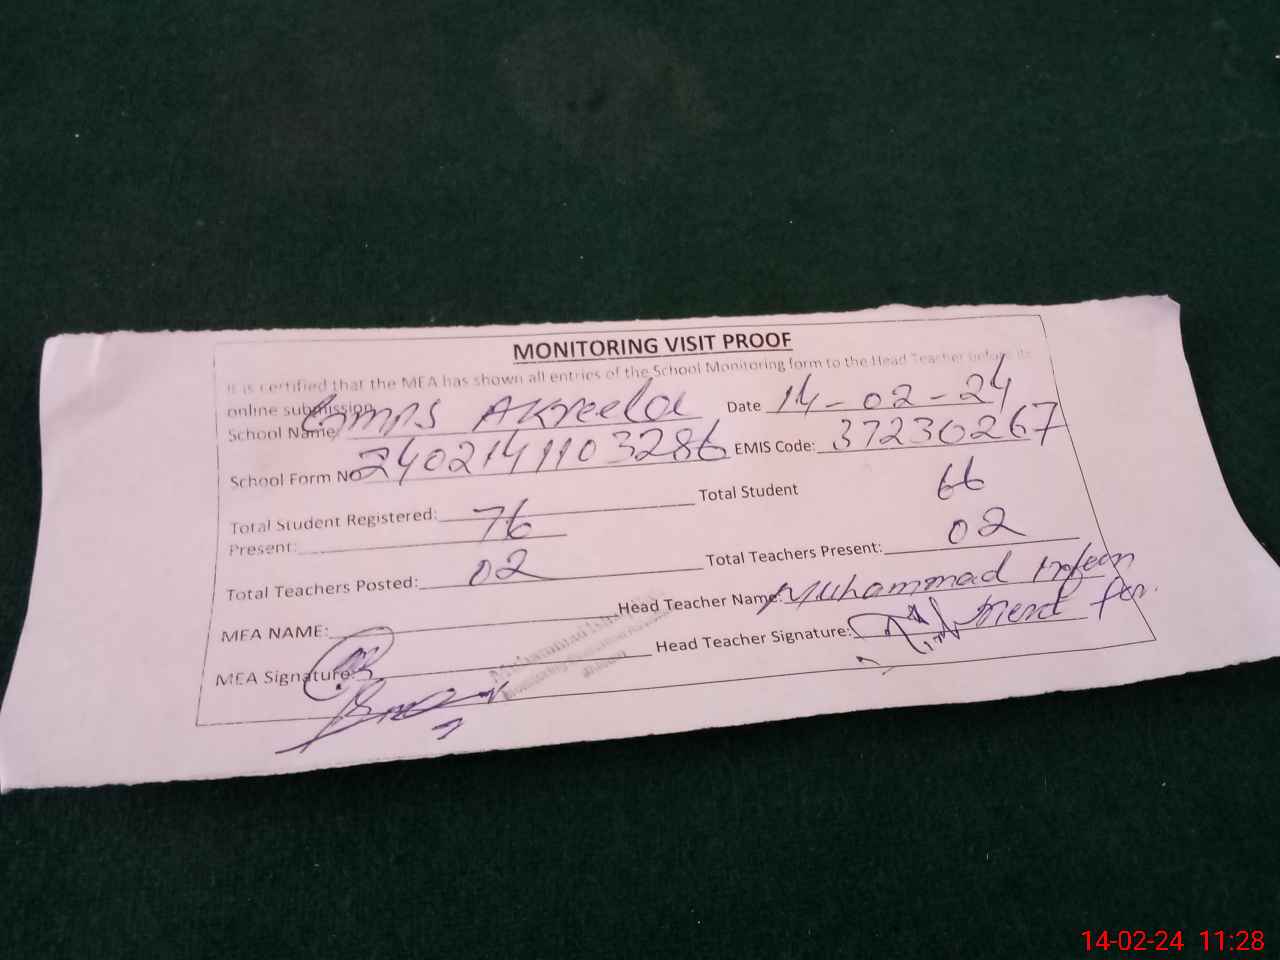 MONITORING VISIT PROOF
It is certified that the MEA has shown all entries of the School Monitoring form to the Head Teacher before its
online submission
School Name: GMPS Akreela Date 14-02-24
School Form No 2402141103286 EMIS Code: 37230267
Total Student Registered: 76 Total Student 66
Present:
Total Teachers Posted: 02 Total Teachers Present: 02
MEA NAME: Head Teacher Name: Muhammad
MEA Signature: Head Teacher Signature:
14-02-24 11:28